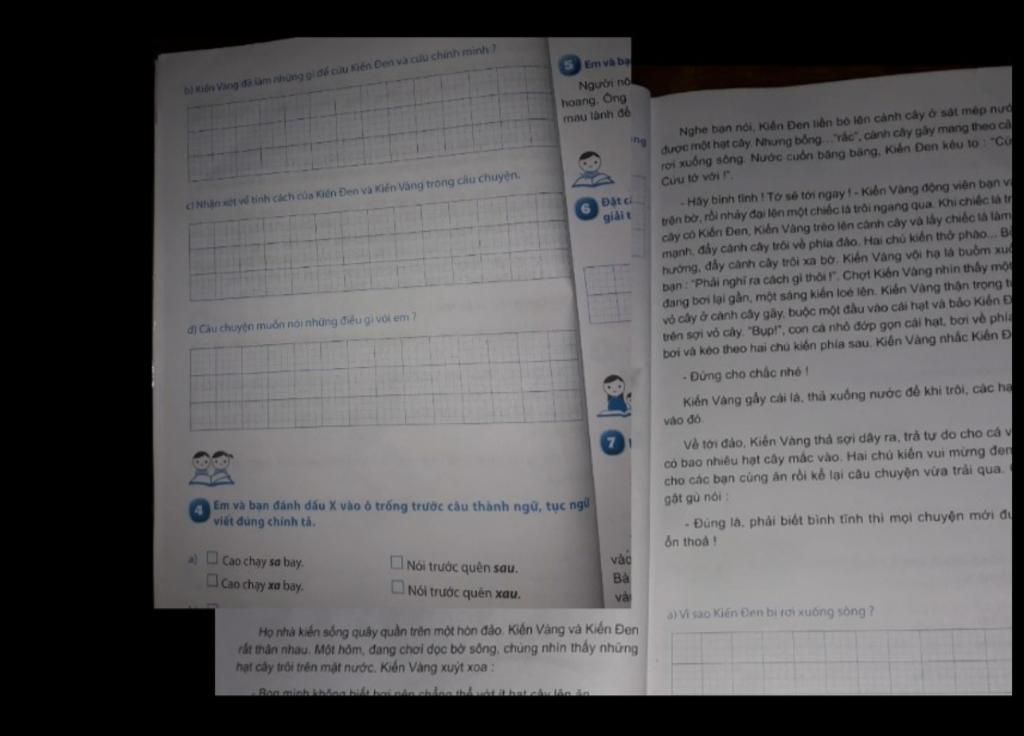 b) Kiến Vàng đã làm những gì để cứu Kiến Đen và cứu chính mình ?
c) Nhận xét về tính cách của Kiến Đen và Kiến Vàng trong câu chuyện.
d) Câu chuyện muốn nói những điều gì với em ?
4 Em và bạn đánh dấu X vào ô trống trước câu thành ngữ, tục ngữ
viết đúng chính tả.
a) Cao chạy sa bay. Nói trước quên sau.
Cao chạy xa bay. Nói trước quên xau.
5 Em và bạ
Người nô
hoang. Ông
mau lành để
ng
6 Đặt c
giải t
7
vàc
Bà
và
Họ nhà kiến sống quây quần trên một hòn đảo. Kiến Vàng và Kiến Đen
rất thân nhau. Một hôm, đang chơi dọc bờ sông, chúng nhìn thấy những
hạt cây trôi trên mặt nước. Kiến Vàng xuýt xoa :
- Bọn mình không biết bơi nên chẳng thể vớt ít hạt cây lên ăn
Nghe bạn nói, Kiến Đen liền bò lên cành cây ở sát mép nướ
được một hạt cây. Nhưng bỗng... "rắc", cành cây gãy mang theo cả
rơi xuống sông. Nước cuốn băng băng, Kiến Đen kêu to : "Cứ
Cứu tớ với !".
- Hãy bình tĩnh ! Tớ sẽ tới ngay ! - Kiến Vàng động viên bạn và
trên bờ, rồi nhảy đại lên một chiếc lá trôi ngang qua. Khi chiếc lá tr
cây có Kiến Đen, Kiến Vàng trèo lên cành cây và lấy chiếc lá làm
mạnh, đẩy cành cây trôi về phía đảo. Hai chú kiến thở phào... B
hướng, đẩy cành cây trôi xa bờ. Kiến Vàng vội hạ lá buồm xuố
bạn : "Phải nghĩ ra cách gì thôi !". Chợt Kiến Vàng nhìn thấy mộ
đang bơi lại gần, một sáng kiến loé lên. Kiến Vàng thận trọng t
vỏ cây ở cành cây gãy, buộc một đầu vào cái hạt và bảo Kiến Đ
trên sợi vỏ cây. "Bụp!", con cá nhỏ đớp gọn cái hạt, bơi về phía
bơi và kéo theo hai chú kiến phía sau. Kiến Vàng nhắc Kiến Đ
- Đứng cho chắc nhé !
Kiến Vàng gẩy cái lá, thả xuống nước để khi trôi, các hạ
vào đó.
Về tới đảo, Kiến Vàng thả sợi dây ra, trả tự do cho cá v
có bao nhiêu hạt cây mắc vào. Hai chú kiến vui mừng đem
cho các bạn cùng ăn rồi kể lại câu chuyện vừa trải qua.
gật gù nói :
- Đúng là, phải biết bình tĩnh thì mọi chuyện mới đư
ổn thoả !
a) Vì sao Kiến Đen bị rơi xuống sông ?